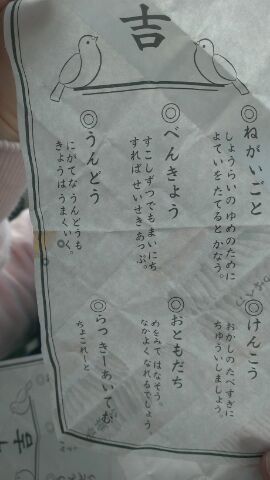 吉
◎ねがいごと
しょうらいの ゆめのために
よていを たてると かなう。
◎けんこう
おかしの たべすぎに
ちゅういしましょう。
◎べんきょう
すこしずつでも まいにち
すれば せいせきあっぷ。
◎おともだち
めをみて はなそう。
なかよく なれるでしょう。
◎うんどう
にがてな うんどうも
きょうは うまくいく。
◎らっきーあいてむ
ちょこれーと